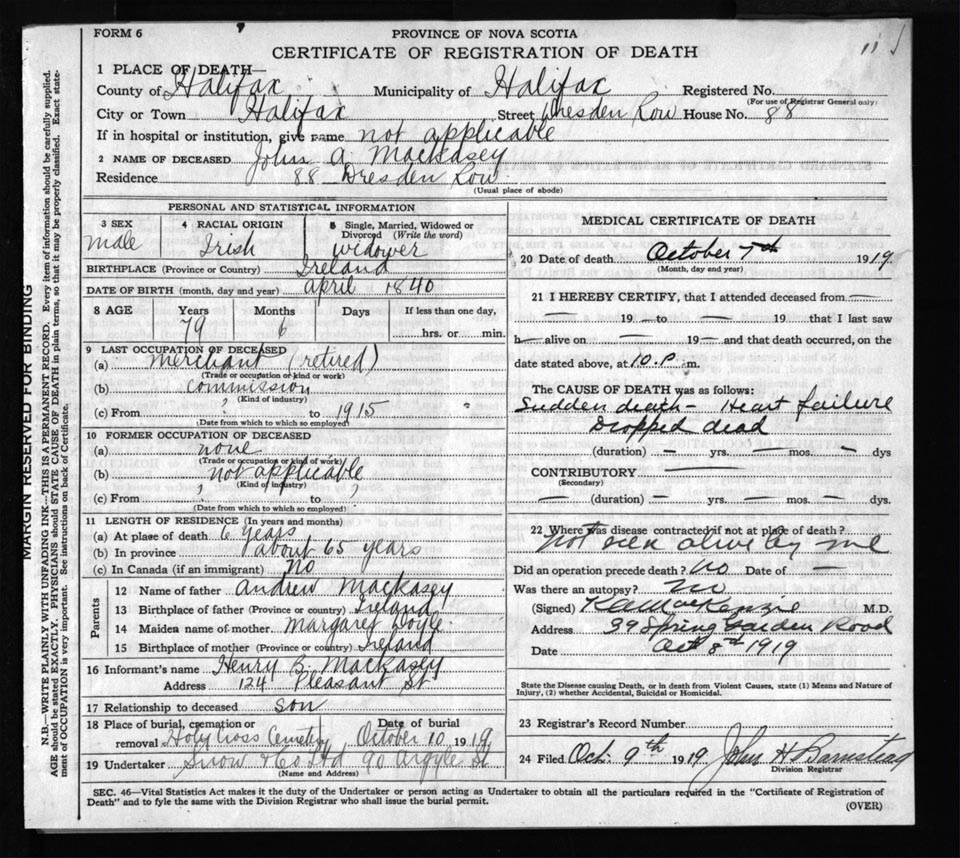 FORM 6
PROVINCE OF NOVA SCOTIA
CERTIFICATE OF REGISTRATION OF DEATH
11
1 PLACE OF DEATH—
County of Halifax Municipality of Halifax Registered No.
(For use of Registrar General only)
City or Town Halifax Street Dresden Row House No. 88
If in hospital or institution, give name not applicable
2 NAME OF DECEASED John A. Mackasey
Residence 88 Dresden Row
(Usual place of abode)
PERSONAL AND STATISTICAL INFORMATION
3 SEX 4 RACIAL ORIGIN 5 Single, Married, Widowed or Divorced (Write the word)
Male Irish Widower
BIRTHPLACE (Province or Country) Ireland
DATE OF BIRTH (month, day and year) April 1840
8 AGE Years Months Days If less than one day,
79 6 hrs. or min.
9 LAST OCCUPATION OF DECEASED
(a) Merchant (retired)
(Trade or occupation or kind of work)
(b) Commission
(Kind of industry)
(c) From ? to 1915
(Date from which to which so employed)
10 FORMER OCCUPATION OF DECEASED
(a) none
(Trade or occupation or kind of work)
(b) not applicable
(Kind of industry)
(c) From ? to ?
(Date from which to which so employed)
11 LENGTH OF RESIDENCE (In years and months)
(a) At place of death 6 years
(b) In province about 65 years
(c) In Canada (if an immigrant) no
Parents
12 Name of father Andrew Mackasey
13 Birthplace of father (Province or country) Ireland
14 Maiden name of mother Margaret Doyle
15 Birthplace of mother (Province or country) Ireland
16 Informant's name Henry B. Mackasey
Address 124 Pleasant St
17 Relationship to deceased son
18 Place of burial, cremation or Date of burial
removal Holy Cross Cemetery October 10 1919
19 Undertaker Snow & Co Ltd 90 Argyle St
(Name and Address)
MEDICAL CERTIFICATE OF DEATH
20 Date of death October 7th 1919
(Month, day and year)
21 I HEREBY CERTIFY, that I attended deceased from —
— 19 — to — 19 that I last saw
h— alive on — 19 — and that death occurred, on the
date stated above, at 10. P. m.
The CAUSE OF DEATH was as follows:
Sudden death - Heart failure
Dropped dead
(duration) — yrs. — mos. — dys
CONTRIBUTORY —
(Secondary)
— (duration) — yrs. — mos. — dys.
22 Where was disease contracted if not at place of death?
Not seen alive by me
Did an operation precede death? No Date of —
Was there an autopsy? No
(Signed) MacKenzie M.D.
Address 39 Spring Garden Road
Date Oct 8th 1919
State the Disease causing Death, or in death from Violent Causes, state (1) Means and Nature of
Injury, (2) whether Accidental, Suicidal or Homicidal.
23 Registrar's Record Number
24 Filed Oct. 9th 1919. John H Barnstead
Division Registrar
SEC. 46—Vital Statistics Act makes it the duty of the Undertaker or person acting as Undertaker to obtain all the particulars required in the "Certificate of Registration of
Death" and to fyle the same with the Division Registrar who shall issue the burial permit.
(OVER)
MARGIN RESERVED FOR BINDING
N.B.—WRITE PLAINLY WITH UNFADING INK—THIS IS A PERMANENT RECORD. Every item of information should be carefully supplied.
AGE should be stated EXACTLY. PHYSICIANS should STATE CAUSE OF DEATH in plain terms, so that it may be properly classified. Exact state-
ment of OCCUPATION is very important. See instructions on back of Certificate.